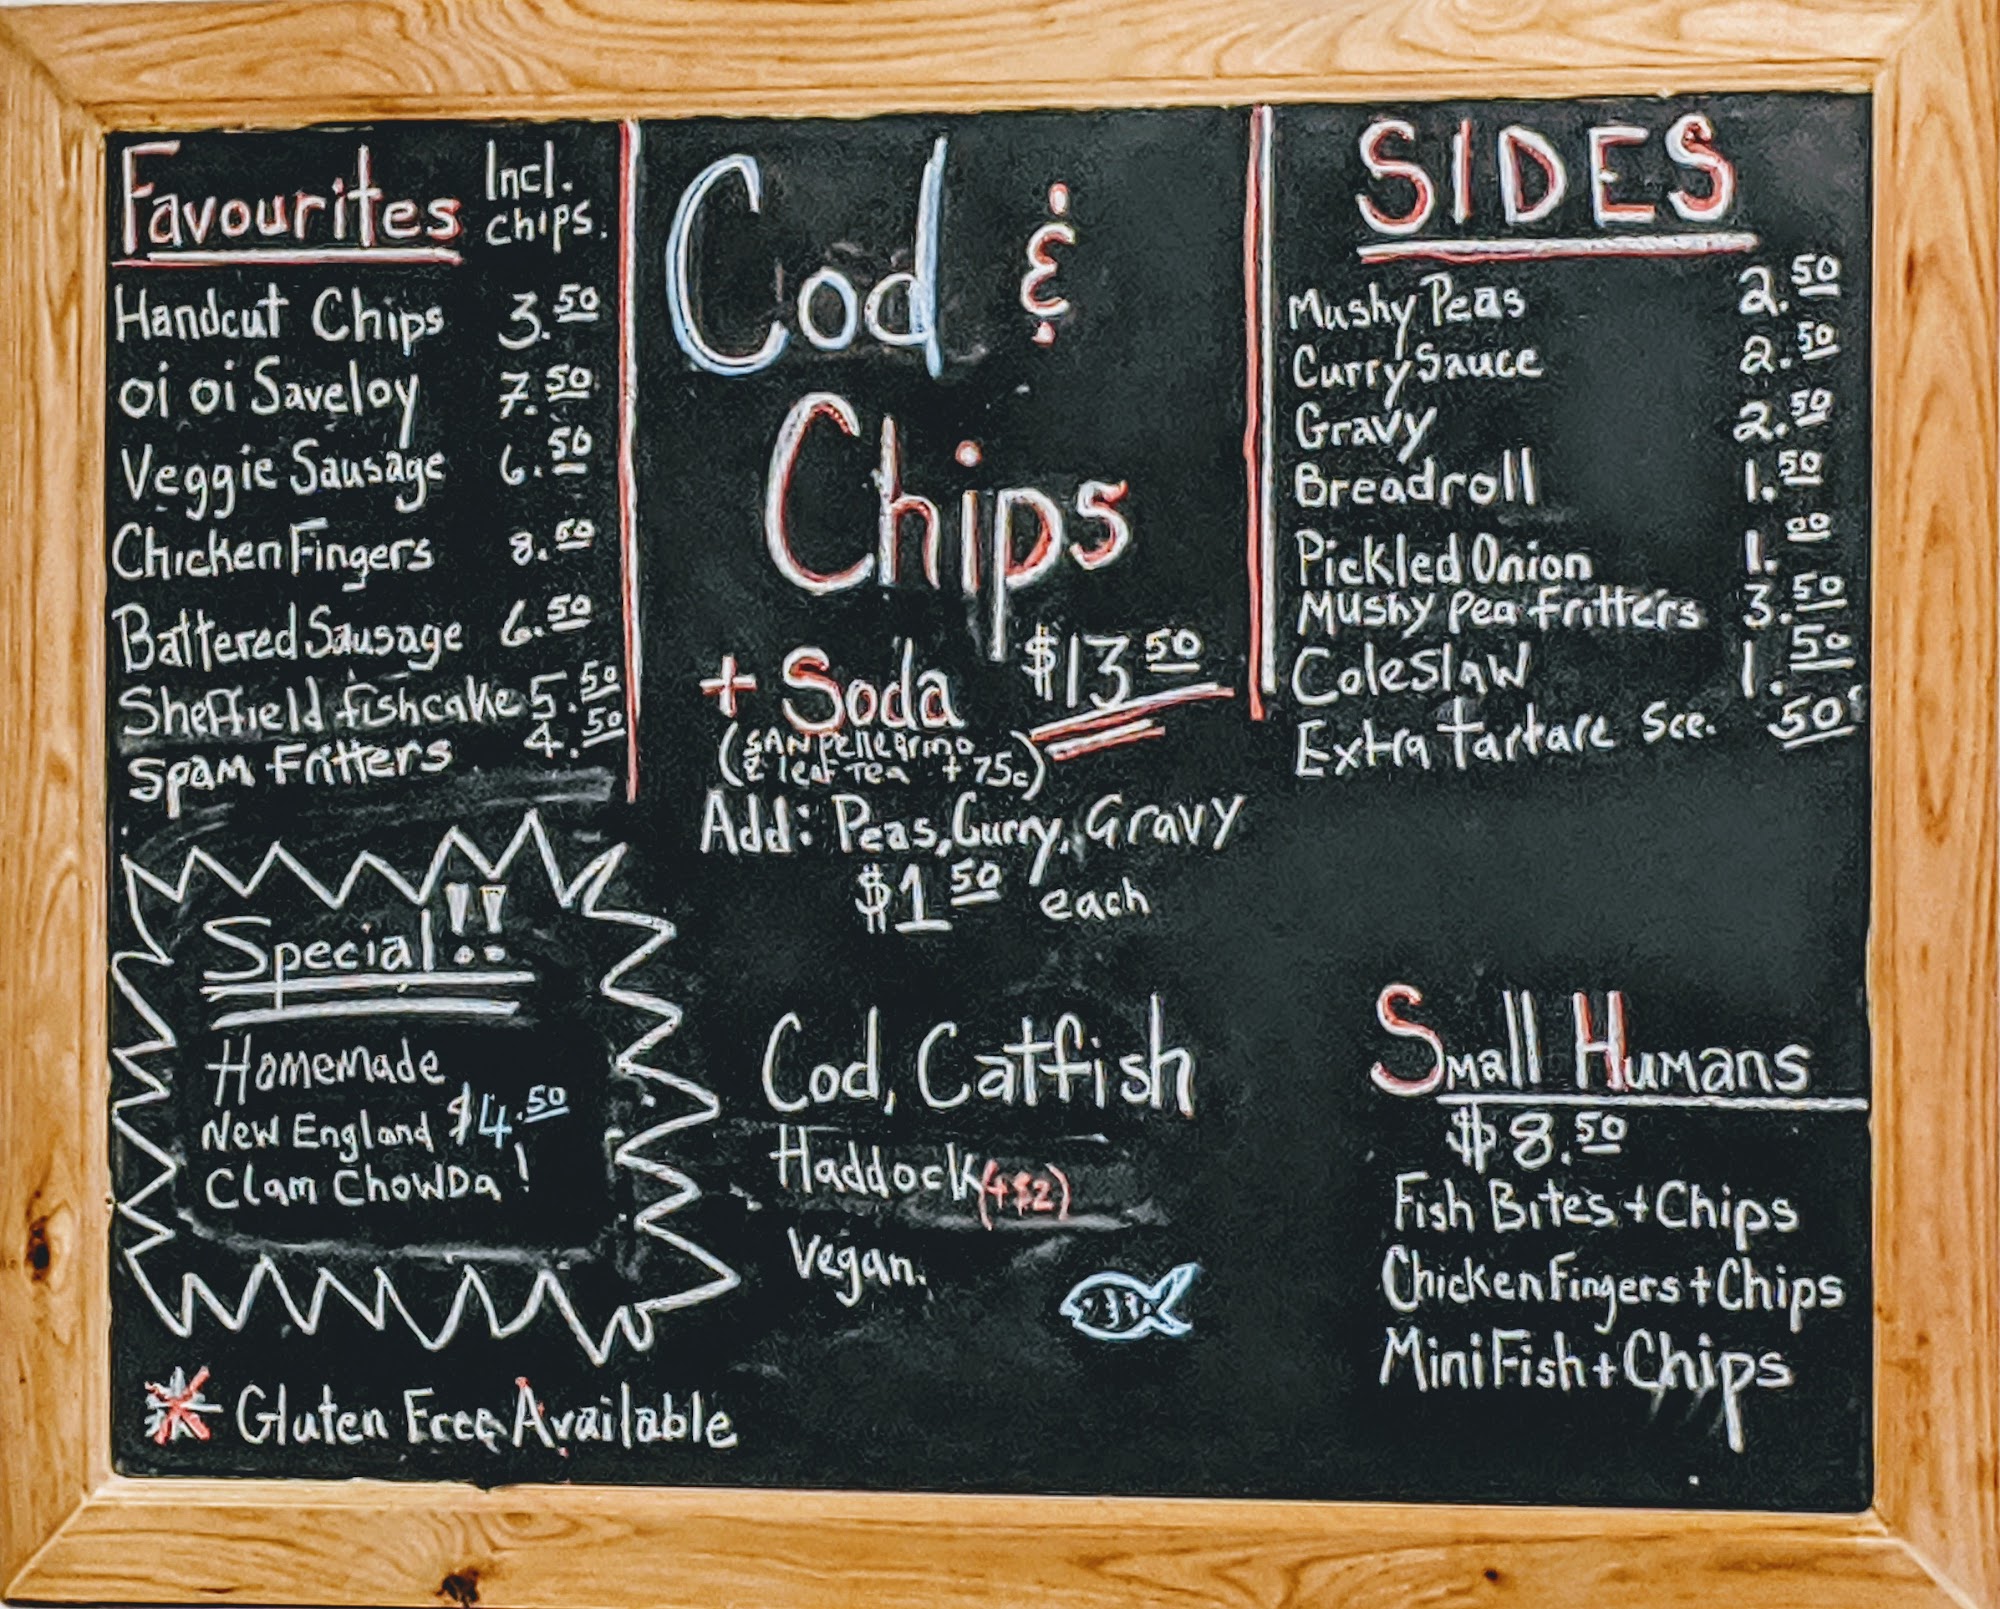 Favourites Incl. chips.
Handcut Chips 3.50
oi oi Saveloy 7.50
Veggie Sausage 6.50
Chicken Fingers 8.50
Battered Sausage 6.50
Sheffield fishcake 5.50
Spam Fritters 4.50
Special!!
Homemade
New England $4.50
Clam Chowda!
* Gluten Free Available
Cod &
Chips
+ Soda $13.50
(San Pellegrino
& leaf Tea +75c)
Add: Peas, Curry, Gravy
$1.50 each
Cod, Catfish
Haddock (+$2)
Vegan.
SIDES
Mushy Peas 2.50
Curry Sauce 2.50
Gravy 2.50
Breadroll 1.50
Pickled Onion 1.00
Mushy Pea Fritters 3.50
Coleslaw 1.50
Extra Tartare Sce. 50c
Small Humans
$8.50
Fish Bites + Chips
Chicken Fingers + Chips
Mini Fish + Chips